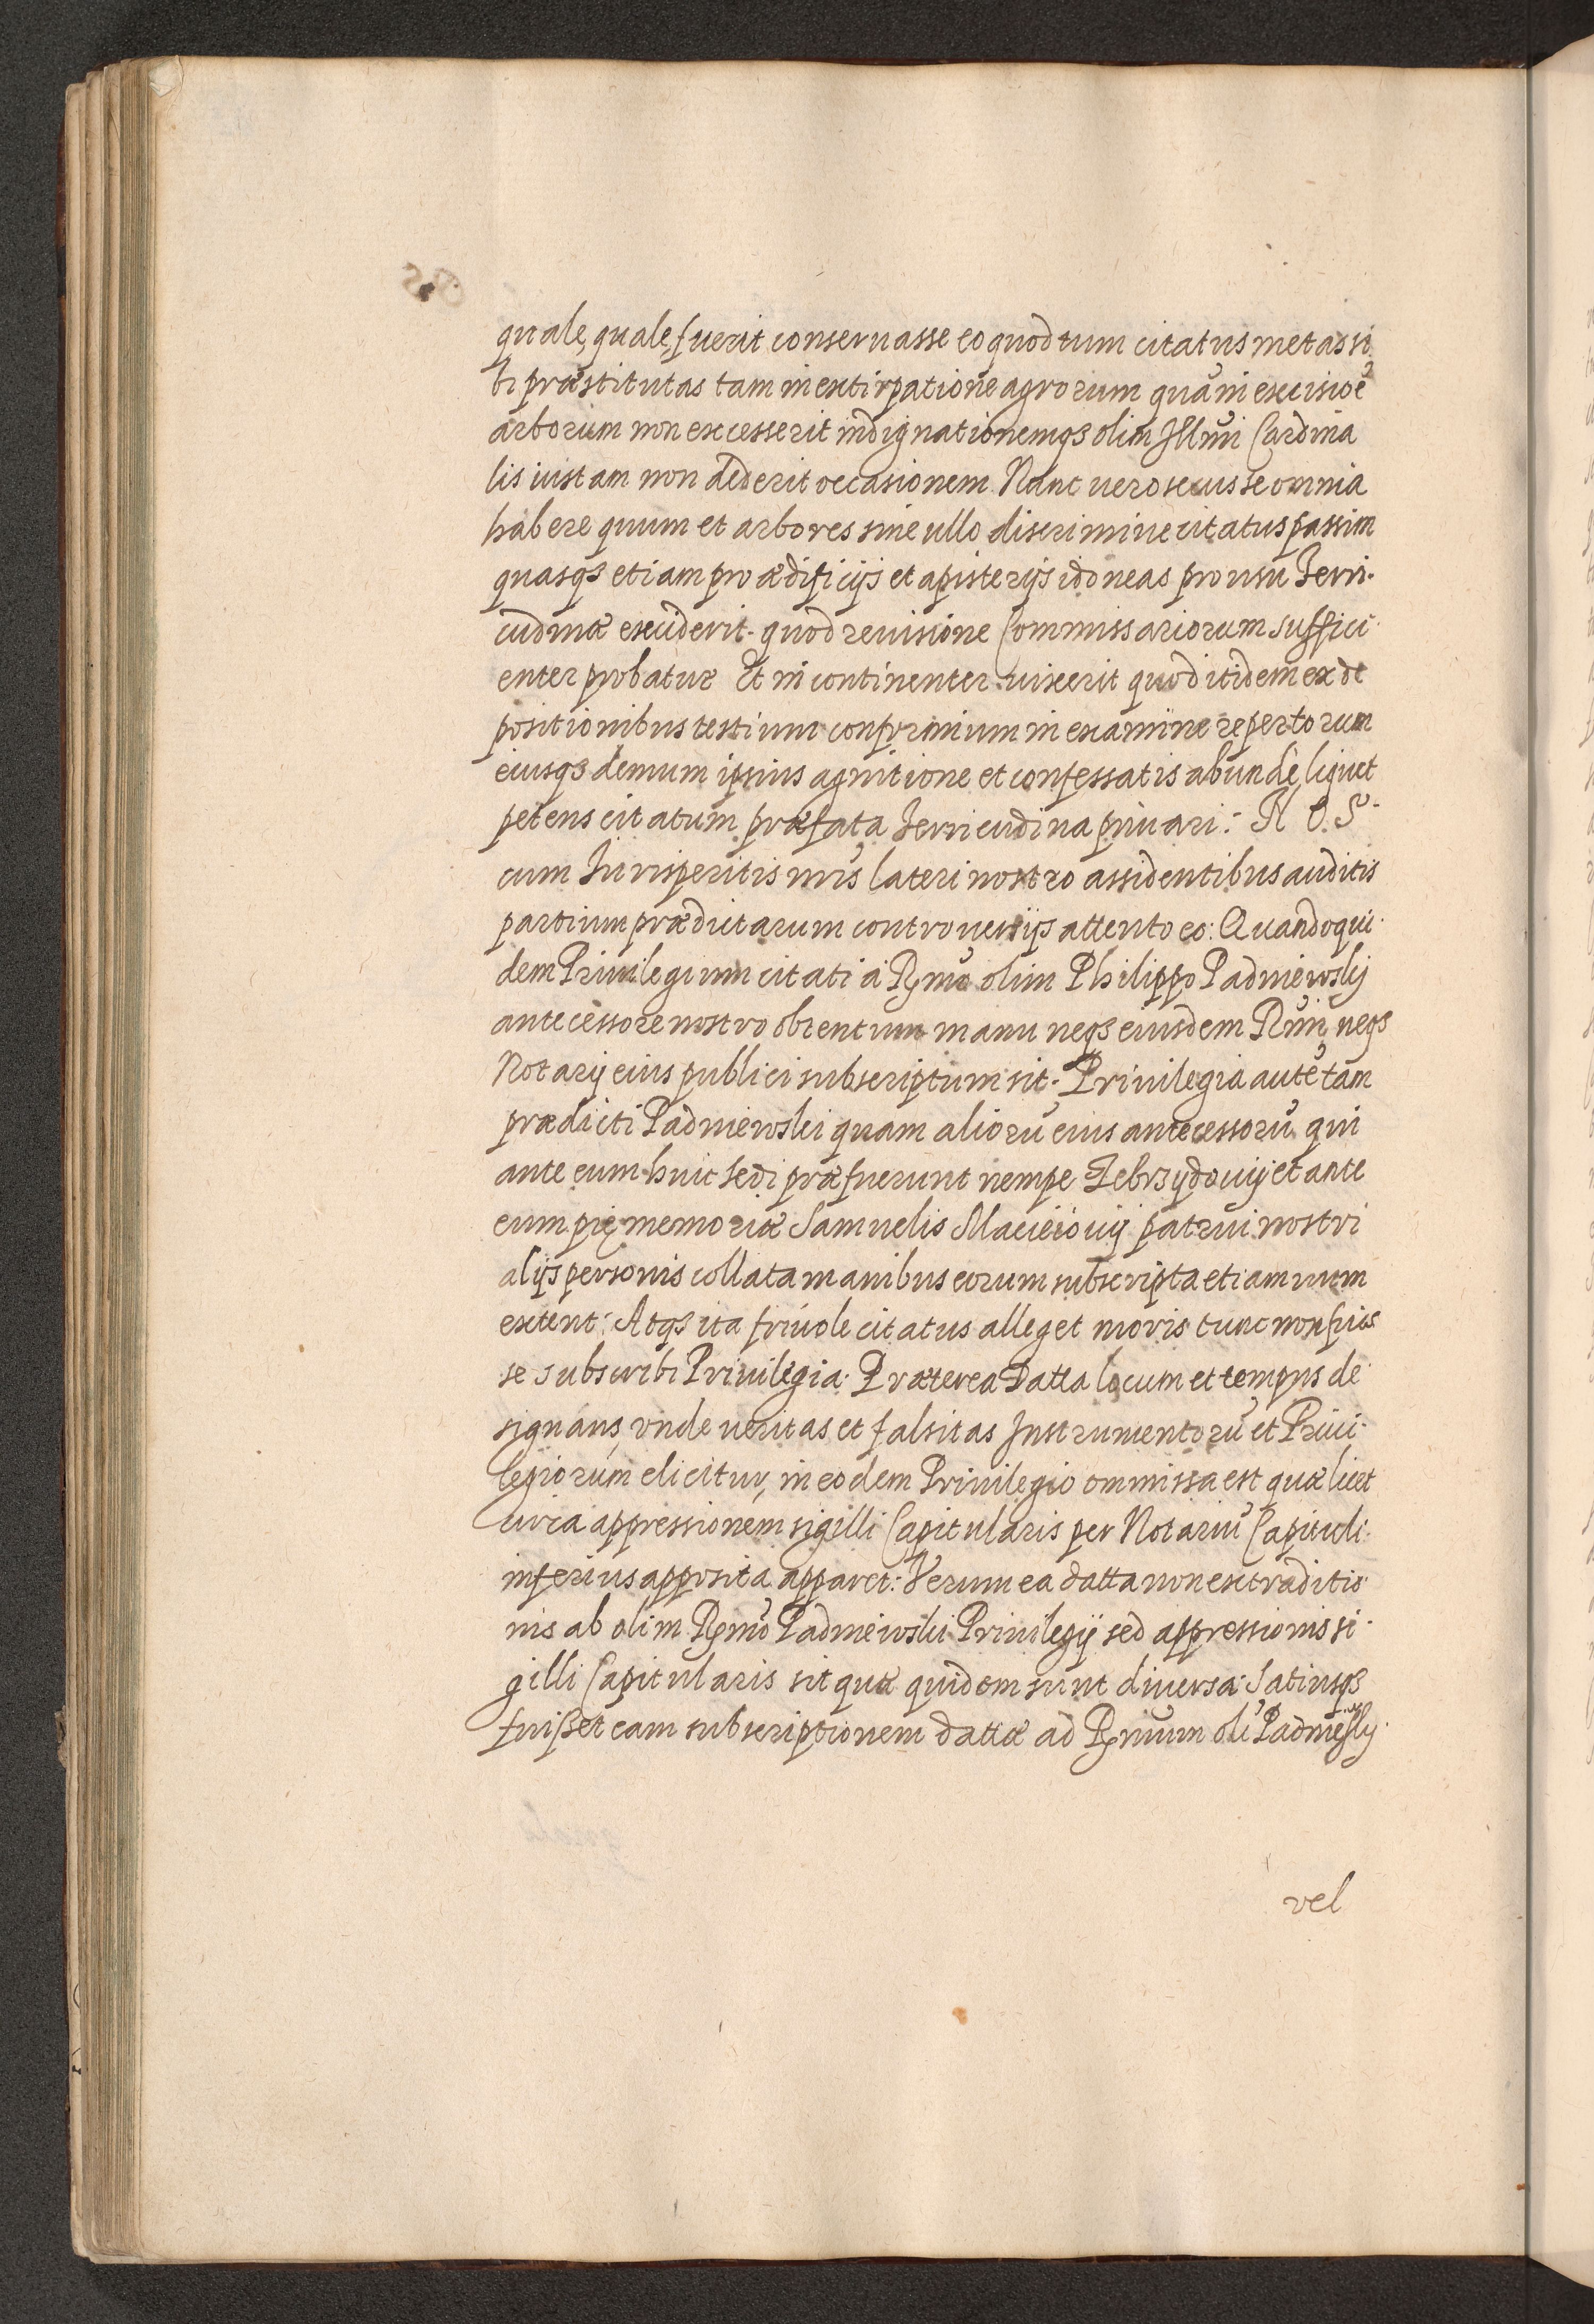 quale, quale, fuerit conseruasse eo quod tum citatus metas si
bi præstitutas tam in extirpatione agrorum quã in excisioẽ
arborum non excesserit indignationemqз olim Illmi Cardina
lis iustam non dederit occasionem. Nunc uero secus se omnia
habere quum et arbores sine ullo discrimine citatus passim
quasqз etiam pro ædificijs et apisterijs idoneas pro usu Ferri-
cudinæ exciderit. quod reuisione Commissariorum suffici
enter probatur Et incontinenter uixerit quod itidem ex de
positionibus testium confrinium in examine repertorum
eiusqз demum ipsius agnitione et confessatis abundè liquet
petens citatum præfata Ferricudina priuari: N O S
cum Iurisperitis nris lateri nostro assidentibus auditis
partium prædictarum controuersijs attento eo: Quandoqui
dem Priuilegium citati à Rmo olim Philippo Padniewsky
antecessore nostro obtentum manu neqз eiusdem Rmi neqз
Notarij eius publici subscriptum sit. Priuilegia autẽ tam
prædicti Padniewski quam aliorũ eius antecessorũ qui
ante eum huic sedi præfuerunt nempe Zebrzydouij et ante
eum pię memoriæ Samuelis Macieiouij patrui nostri
alijs personis collata manibus eorum subscripta etiam num
extent: Atqз ita friuole citatus alleget moris tunc non fuis
se subscribi Priuilegia. Præterea Datta locum et tempus de
signans, vnde ueritas et falsitas Instrumentorũ et Priui-
legiorum elicitur, in eodem Priuilegio ommissa est quæ licet
circa appressionem sigilli Capitularis per Notariũ Capituli
inferius apposita apparet: Verum ea datta non extraditio
nis ab olim Rmo Padniewski Priuilegij sed appressionis si-
gilli Capitularis sit quæ quidem sunt diuersa: Satiusqз
fuißet eam subscriptionem dattæ ad Rmum oli Padniewsky
vel